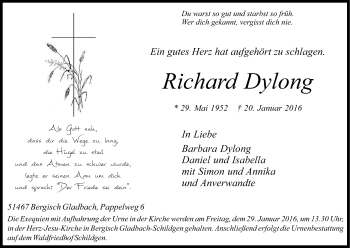 Du warst so gut und starbst so früh.
Wer dich gekannt, vergisst dich nie.
Ein gutes Herz hat aufgehört zu schlagen.
Richard Dylong
* 29. Mai 1952 † 20. Januar 2016
Als Gott sah,
dass dir die Wege zu lang,
die Hügel zu steil
und das Atmen zu schwer wurde,
legte er seinen Arm um dich
und sprach: "Der Friede sei dein".
In Liebe
Barbara Dylong
Daniel und Isabella
mit Simon und Annika
und Anverwandte
51467 Bergisch Gladbach, Pappelweg 6
Die Exequien mit Aufbahrung der Urne in der Kirche werden am Freitag, dem 29. Januar 2016, um 13.30 Uhr,
in der Herz-Jesu-Kirche in Bergisch Gladbach-Schildgen gehalten. Anschließend erfolgt die Urnenbestattung
auf dem Waldfriedhof Schildgen.